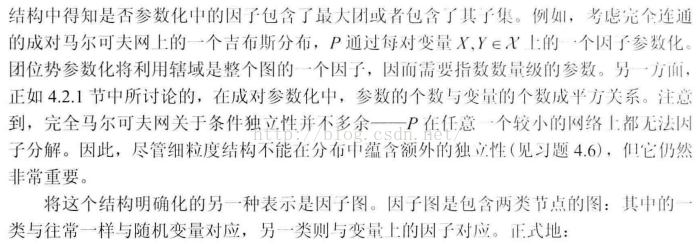 结构中得知是否参数化中的因子包含了最大团或者包含了其子集。例如，考虑完全连通
的成对马尔可夫网上的一个吉布斯分布，P 通过每对变量 X,Y∈𝒳 上的一个因子参数化。
团位势参数化将利用辖域是整个图的一个因子，因而需要指数数量级的参数。另一方面，
正如 4.2.1 节中所讨论的，在成对参数化中，参数的个数与变量的个数成平方关系。注意
到，完全马尔可夫网关于条件独立性并不多余——P 在任意一个较小的网络上都无法因
子分解。因此，尽管细粒度结构不能在分布中蕴含额外的独立性(见习题 4.6)，但它仍然
非常重要。
将这个结构明确化的另一种表示是因子图。因子图是包含两类节点的图：其中的一
类与往常一样与随机变量对应，另一类则与变量上的因子对应。正式地：
http://blog.csdn.net/